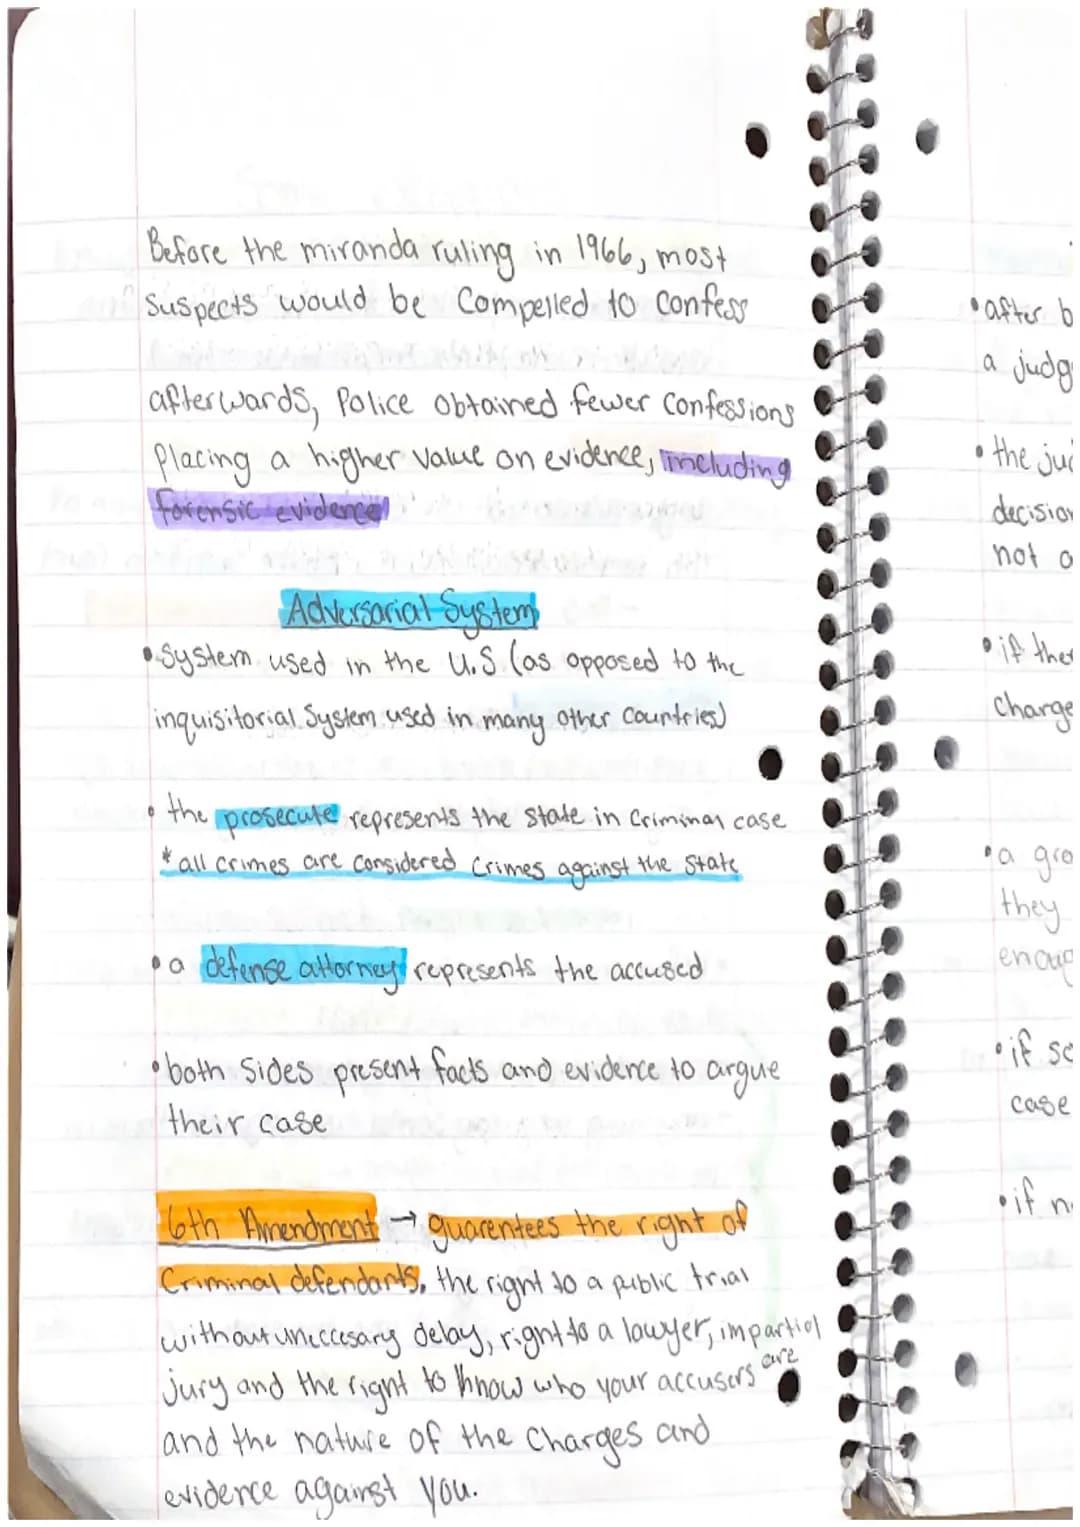 Before the miranda ruling in 1966, most
suspects would be "compelled to confess
afterwards, Police obtained fewer confessions
placing a higher value on evidence, including
forensic evidence
Adversarial System
•System used in the U.S (as opposed to the
inquisitorial System used in many other countries)
• the prosecute represents the state in criminal case
*all crimes are considered crimes against the state
• a defense attorney represents the accused
• both sides present facts and evidence to argue
their case
6th Amendment → guarentees the right of
Criminal defendants, the right to a public trial
without uneccesary delay, right to a lawyer, impartial
jury and the right to know who your accusers are
and the nature of the charges and
evidence against you.
• after b
a judg
• the jud
decision
not a
• if ther
charge
• a gro
they
enoug
• if so
case
• if n